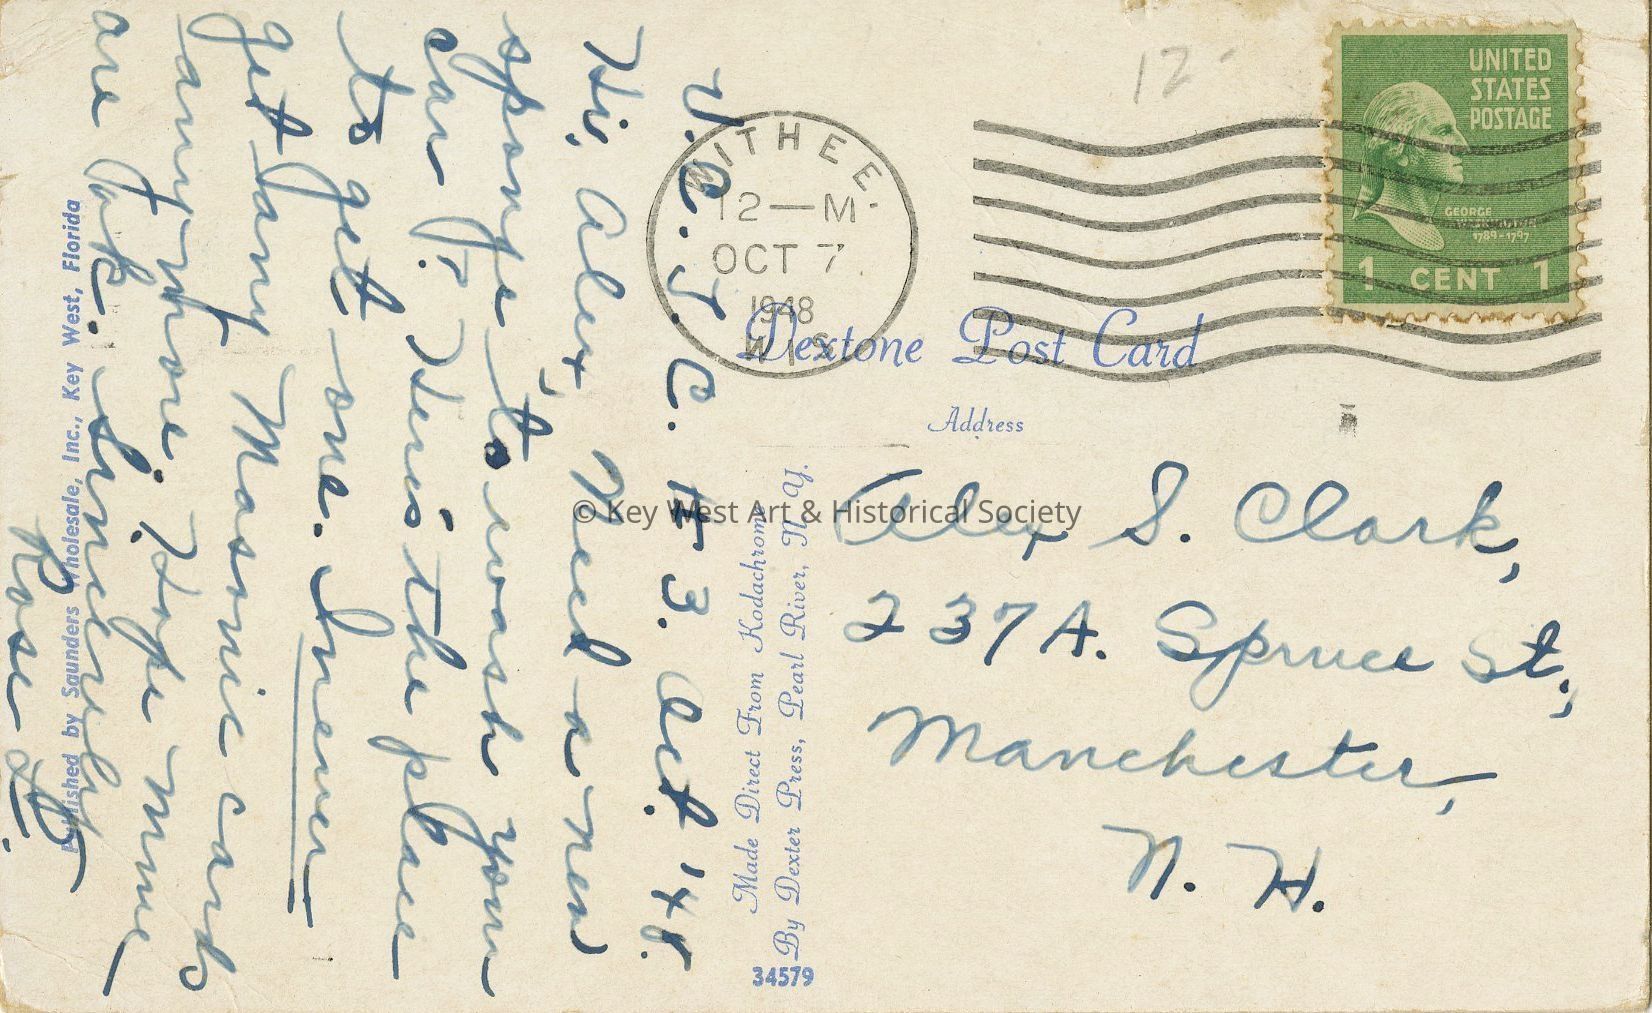 V.O.J.C. #3. Oct. '48.
Hi, Alex, Need a new
sponge to wash your
car J? Here's the place
to get one. I never
get any Masonic cards
anymore. Hope mine
are ok. Sincerely
Rose
Published by Saunders Wholesale, Inc., Key West, Florida
WITHEE
12—M
OCT 7
1948
WIS
12-
UNITED
STATES
POSTAGE
GEORGE
WASHINGTON
1789-1797
1 CENT 1
Dextone Post Card
Address
Made Direct From Kodachrome
By Dexter Press, Pearl River, N. Y.
34579
© Key West Art & Historical Society
Alex S. Clark,
237A. Spruce St.,
Manchester,
N. H.